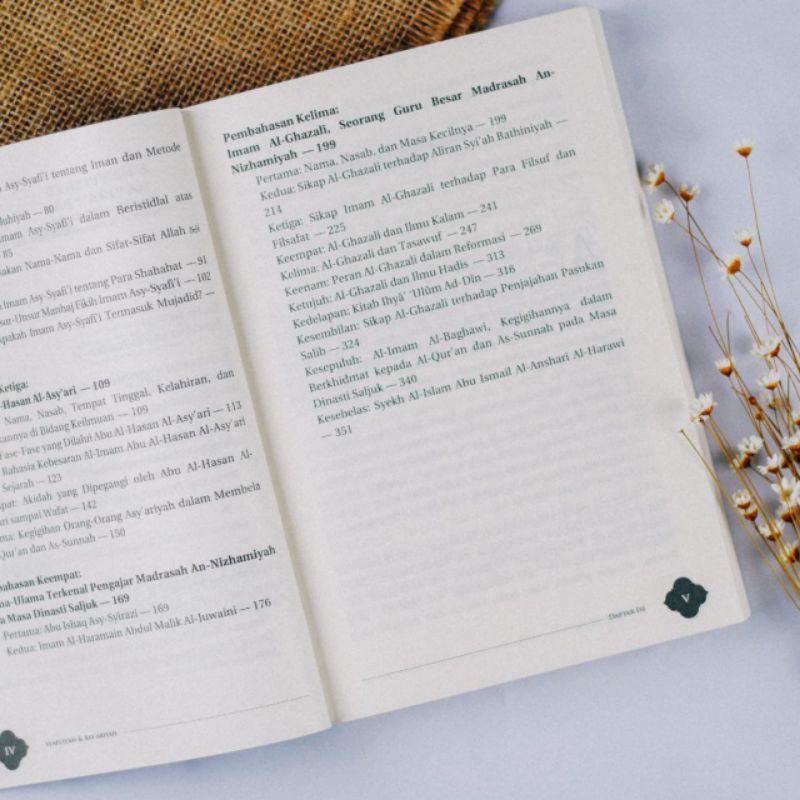 Asy-Syafi'i tentang Iman dan Metode
— 80
Asy-Syafi'i dalam Beristidlal atas
85
Nama-Nama dan Sifat-Sifat Allah
Imam Asy-Syafi'i tentang Para Shahabat — 91
Manhaj Fikih Imam Asy-Syafi'i — 102
Imam Asy-Syafi'i Termasuk Mujadid? —
Ketiga:
Hasan Al-Asy'ari — 109
Nama, Nasab, Tempat Tinggal, Kelahiran, dan
di Bidang Keilmuan — 109
Fase-Fase yang Dilalui Abu Al-Hasan Al-Asy'ari — 113
Rahasia Kebesaran Al-Imam Abu Al-Hasan Al-Asy'ari
Sejarah — 123
Akidah yang Dipegangi oleh Abu Al-Hasan Al-
sampai Wafat — 142
Kegigihan Orang-Orang Asy'ariyah dalam Membela
Qur'an dan As-Sunnah — 150
Keempat:
Terkenal Pengajar Madrasah An-Nizhamiyah
Masa Dinasti Saljuk — 169
Pertama: Abu Ishaq Asy-Syirazi — 169
Kedua: Imam Al-Haramain Abdul Malik Al-Juwaini — 176
IV
Pembahasan Kelima:
Imam Al-Ghazali, Seorang Guru Besar Madrasah An-
Nizhamiyah — 199
Pertama: Nama, Nasab, dan Masa Kecilnya — 199
Kedua: Sikap Al-Ghazali terhadap Aliran Syi'ah Bathiniyah —
214
Ketiga: Sikap Imam Al-Ghazali terhadap Para Filsuf dan
Filsafat — 225
Keempat: Al-Ghazali dan Ilmu Kalam — 241
Kelima: Al-Ghazali dan Tasawuf — 247
Keenam: Peran Al-Ghazali dalam Reformasi — 269
Ketujuh: Al-Ghazali dan Ilmu Hadis — 313
Kedelapan: Kitab Ihyâ' 'Ulûm Ad-Dîn — 316
Kesembilan: Sikap Al-Ghazali terhadap Penjajahan Pasukan
Salib — 324
Kesepuluh: Al-Imam Al-Baghawi, Kegigihannya dalam
Berkhidmat kepada Al-Qur'an dan As-Sunnah pada Masa
Dinasti Saljuk — 340
Kesebelas: Syekh Al-Islam Abu Ismail Al-Anshari Al-Harawi
— 351
Daftar Isi
V